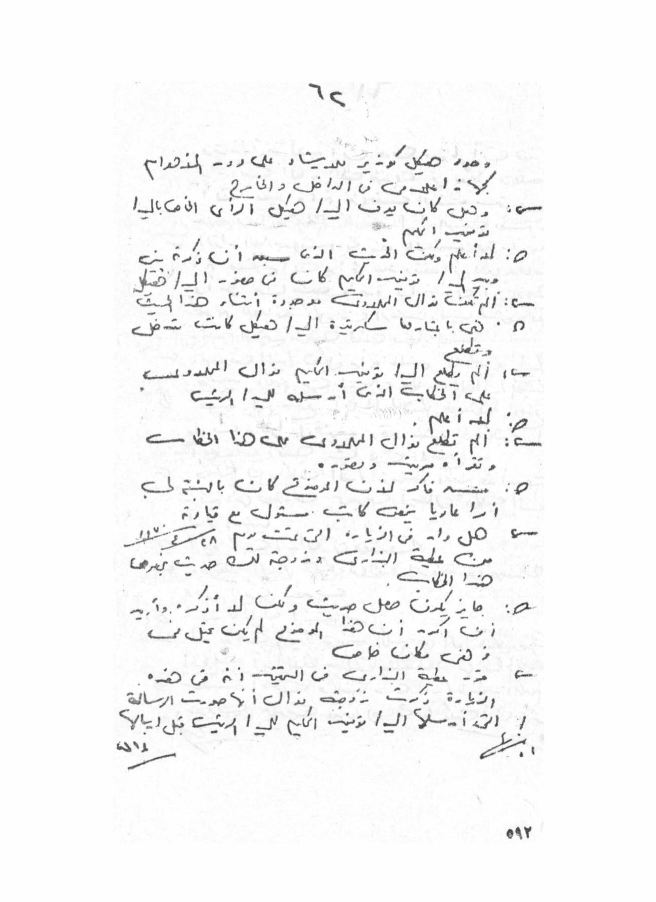 ٦٢
وجود هيكل كوزير للارشاد على
اعلامى فى الداخل والخارج
س: وهل كان يعرف السيد/ هيكل الرأى الخاص بالسيد/
توفيق الحكيم
ج: لا أعلم ولكن الحديث الذى سبق أن ذكرته بينى
وبين السيد/ توفيق الحكيم كان فى حضور السيد/ هيكل
س: ألم تكن نوال المحلاوى موجودة أثناء هذا الحديث
ج: هى باعتبارها سكرتيرة السيد/ هيكل كانت تدخل
وتطلع
س: ألم يطلع السيد/ توفيق الحكيم نوال المحلاوى
على الخطاب الذى أرسله للسيد/ الرئيس
ج: لا أعلم.
س: ألم تطلع نوال المحلاوى على هذا الخطاب
وتقرأه
ج: مش فاكر لأن الموضوع كان بالنسبة لى
أمرا عاديا كاتب مسئول مع قيادة
س: هل دار فى الزيارة التى تمت يوم ٢٨/
من عطية البندارى وزوجته لك حديث بخصوص
هذا الخطاب.
ج: جايز يكون حصل حديث ولكن لا أذكره وأريد
أن أكرر أن هذا الموضوع لم يكن يمثل فى
ذهنى مكان خاص
س: قرر عطية البندارى فى التحقيق أنه فى هذه
الزيارة ذكرت زوجته نوال أنها صورت الرسالة
التى أرسلها السيد/ توفيق الحكيم للسيد/ الرئيس قبل ارسالها
٥٩٢